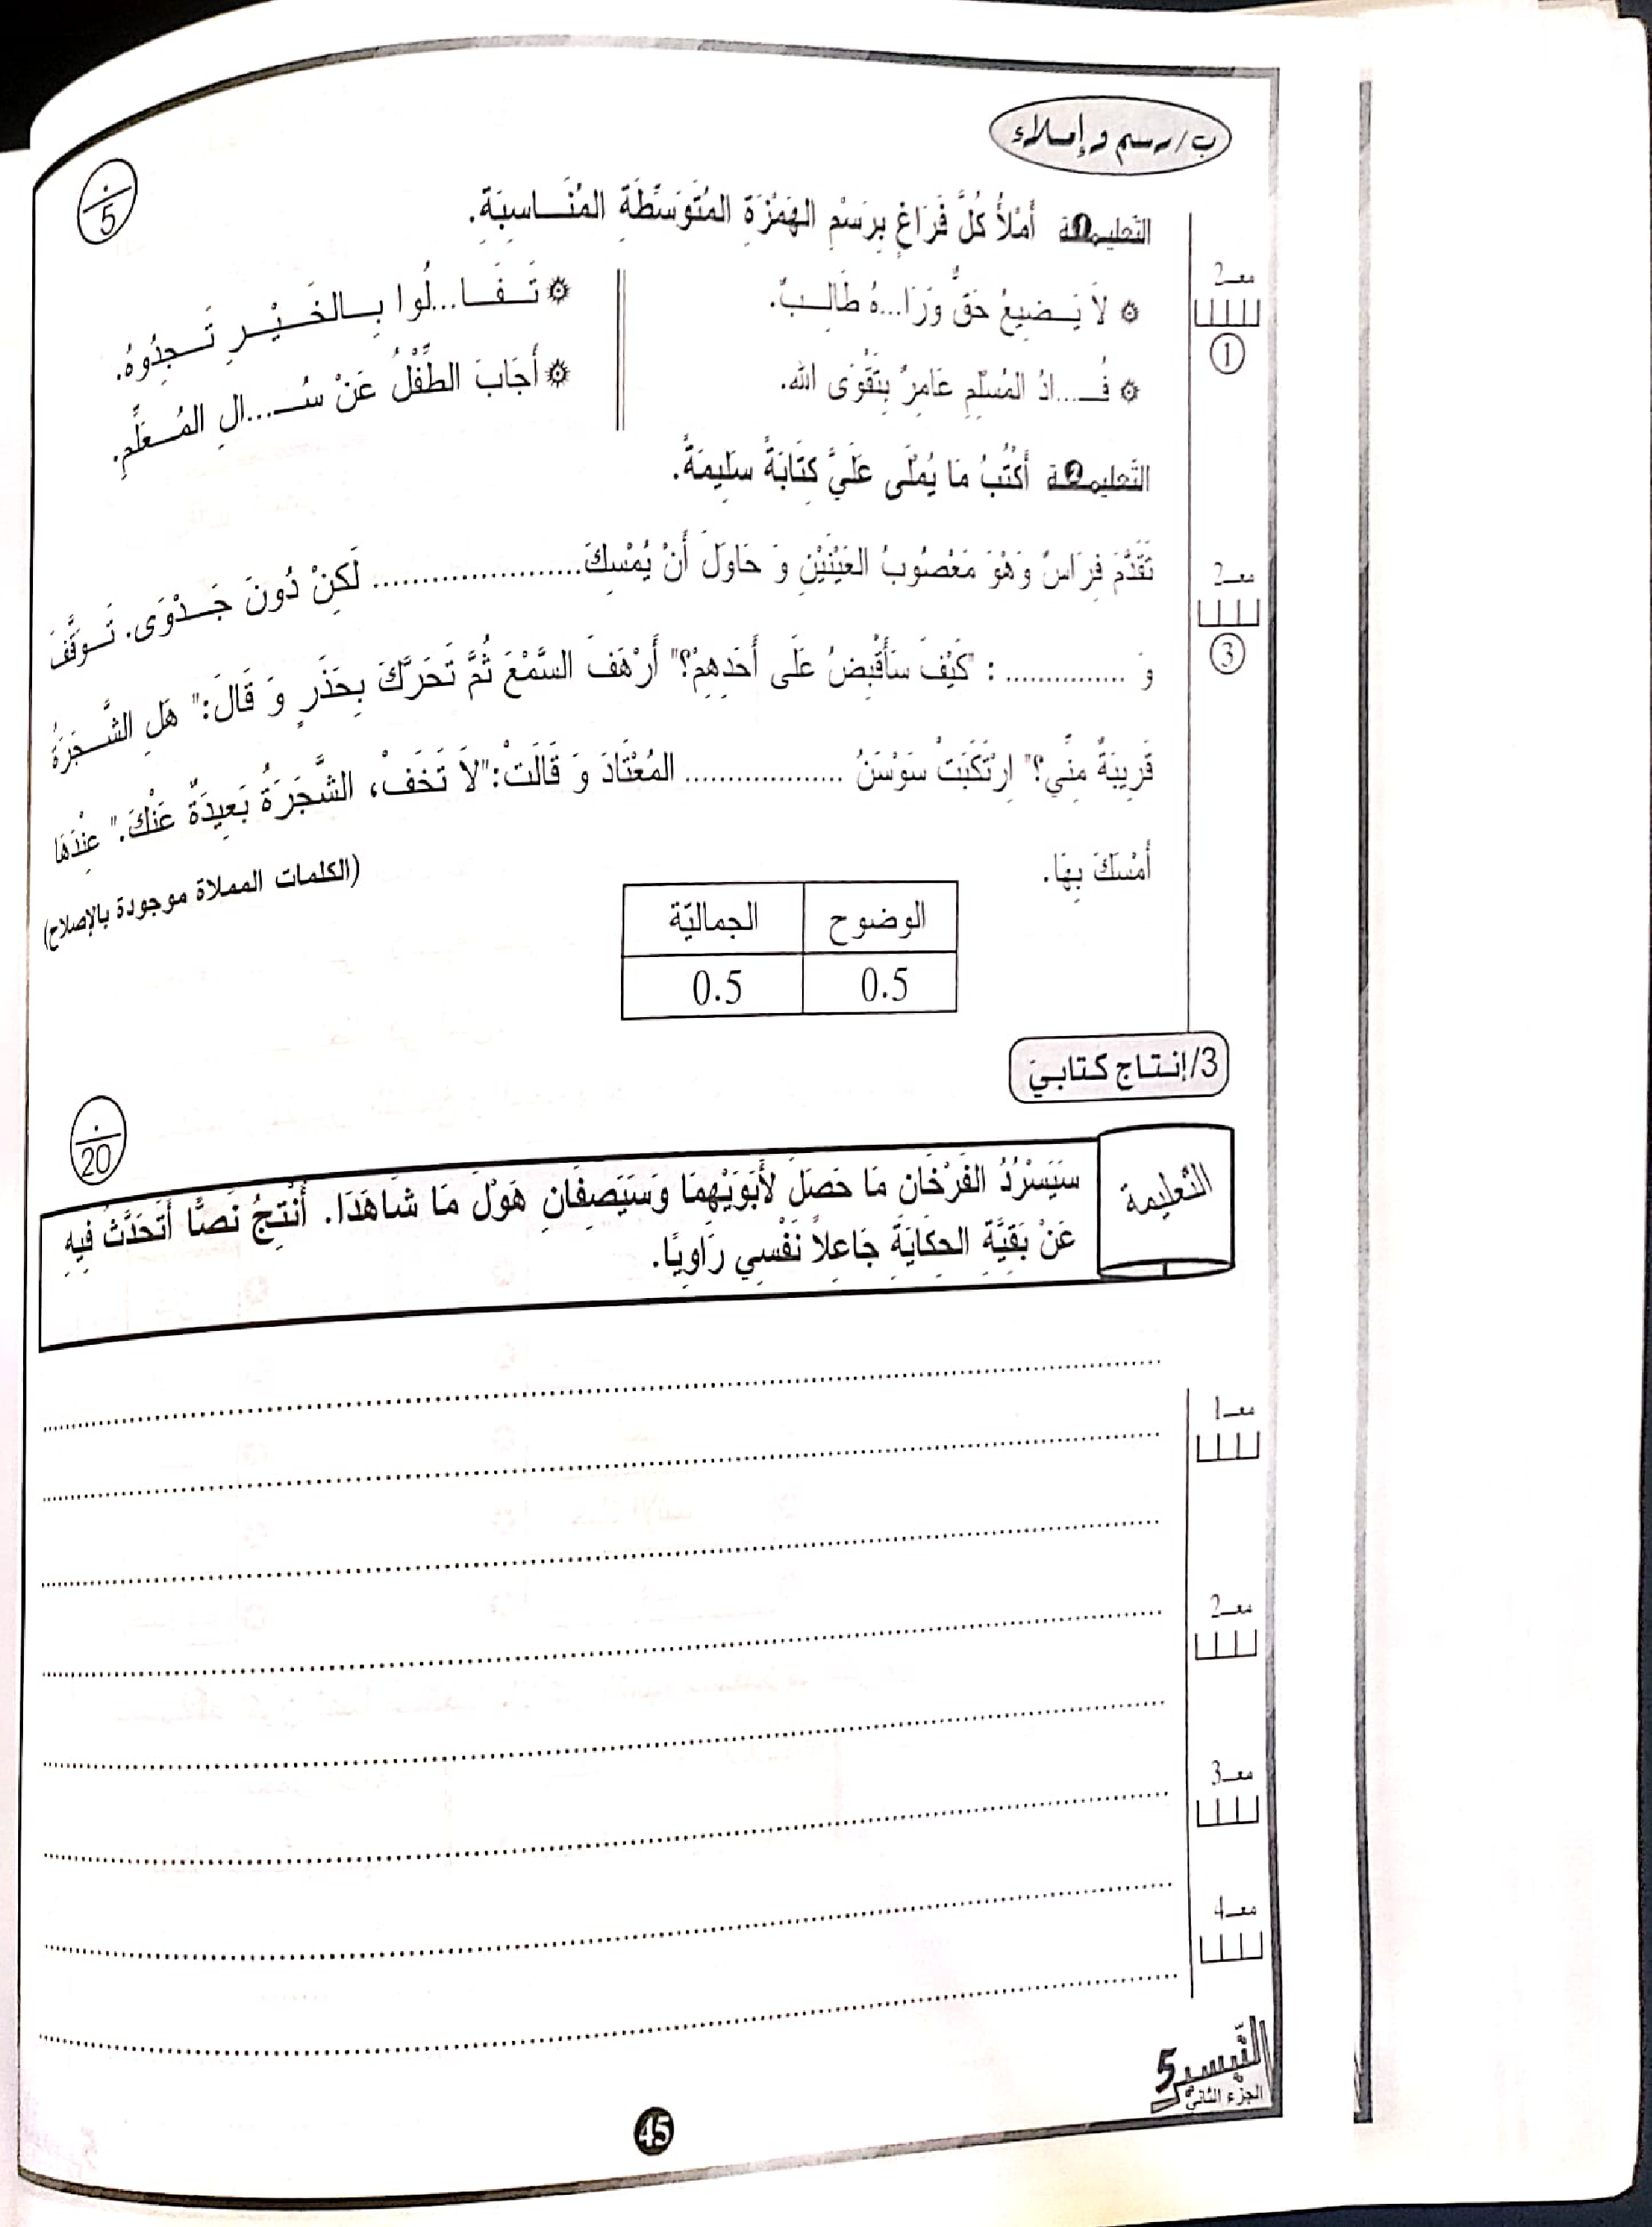 ب/رسم وإملاء
5
التّعليمـ1ـة أَمْلَأُ كُلَّ فَرَاغٍ بِرَسْمِ الهَمْزَةِ المُتَوَسِّطَةِ المُنَـــاسِبَةِ.
معـ2
1
لاَ يَـــضِيعُ حَقٌّ وَرَا...هُ طَالِـــبٌ.
تَـــفَـــا...لُوا بِـــالخَـــيْـــرِ تَـــجِدُوهُ.
فُـــ...ادُ المُسْلِمِ عَامِرٌ بِتَقْوَى الله.
أَجَابَ الطِّفْلُ عَنْ سُـــ...الِ المُـــعَلِّمِ.
التّعليمـ2ـة أَكْتُبُ مَا يُمْلَى عَلَيَّ كِتَابَةً سَلِيمَةً.
معـ2
3
تَقَدَّمَ فِرَاسٌ وَهْوَ مَعْصُوبُ العَيْنَيْنِ وَ حَاوَلَ أَنْ يُمْسِكَ..................... لَكِنْ دُونَ جَـــدْوَى. تَـــوَقَّفَ
وَ ............... : "كَيْفَ سَأَقْبِضُ عَلَى أَحَدِهِمْ؟" أَرْهَفَ السَّمْعَ ثُمَّ تَحَرَّكَ بِحَذَرٍ وَ قَالَ:" هَلِ الشَّـــجَرَةُ
قَرِيبَةٌ مِنِّي؟" اِرْتَكَبَتْ سَوْسَنُ ................... المُعْتَادَ وَ قَالَتْ:"لاَ تَخَفْ، الشَّجَرَةُ بَعِيدَةٌ عَنْكَ." عِنْدَهَا
أَمْسَكَ بِهَا.
(الكلمات المملاة موجودة بالإصلاح)
الوضوح الجماليّة
0.5 0.5
3/إنتاج كتابيّ
20
التّعليمة
سَيَسْرُدُ الفَرْخَانِ مَا حَصَلَ لأَبَوَيْهِمَا وَسَيَصِفَانِ هَوْلَ مَا شَاهَدَا. أُنْتِجُ نَصًّا أَتَحَدَّثُ فِيهِ
عَنْ بَقِيَّةِ الحِكَايَةِ جَاعِلاً نَفْسِي رَاوِيًا.
معـ1
معـ2
معـ3
معـ4
التّيسير5
الجزء الثاني
45